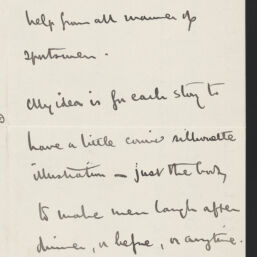 help from all manner of
sportsmen.
My idea is for each story to
have a little comic silhouette
illustration – just the body
to make men laugh after
dinner, or before, or anytime.